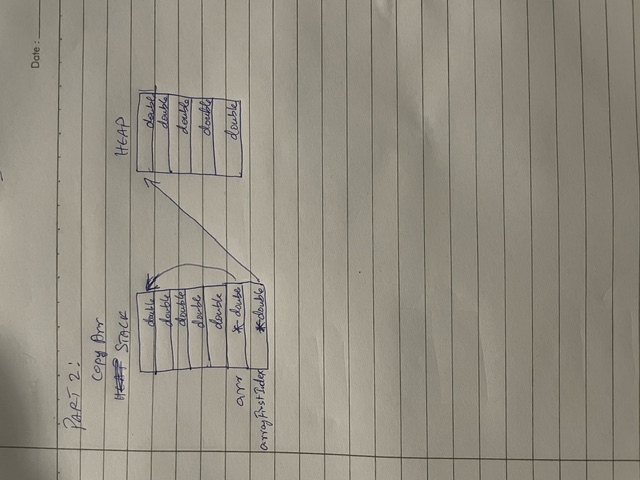 Date :
PART 2:
Copy Arr
HEAP STACK
double
double
double
double
double
arr * double
arrayFirstIndex *double
HEAP
double
double
double
double
double